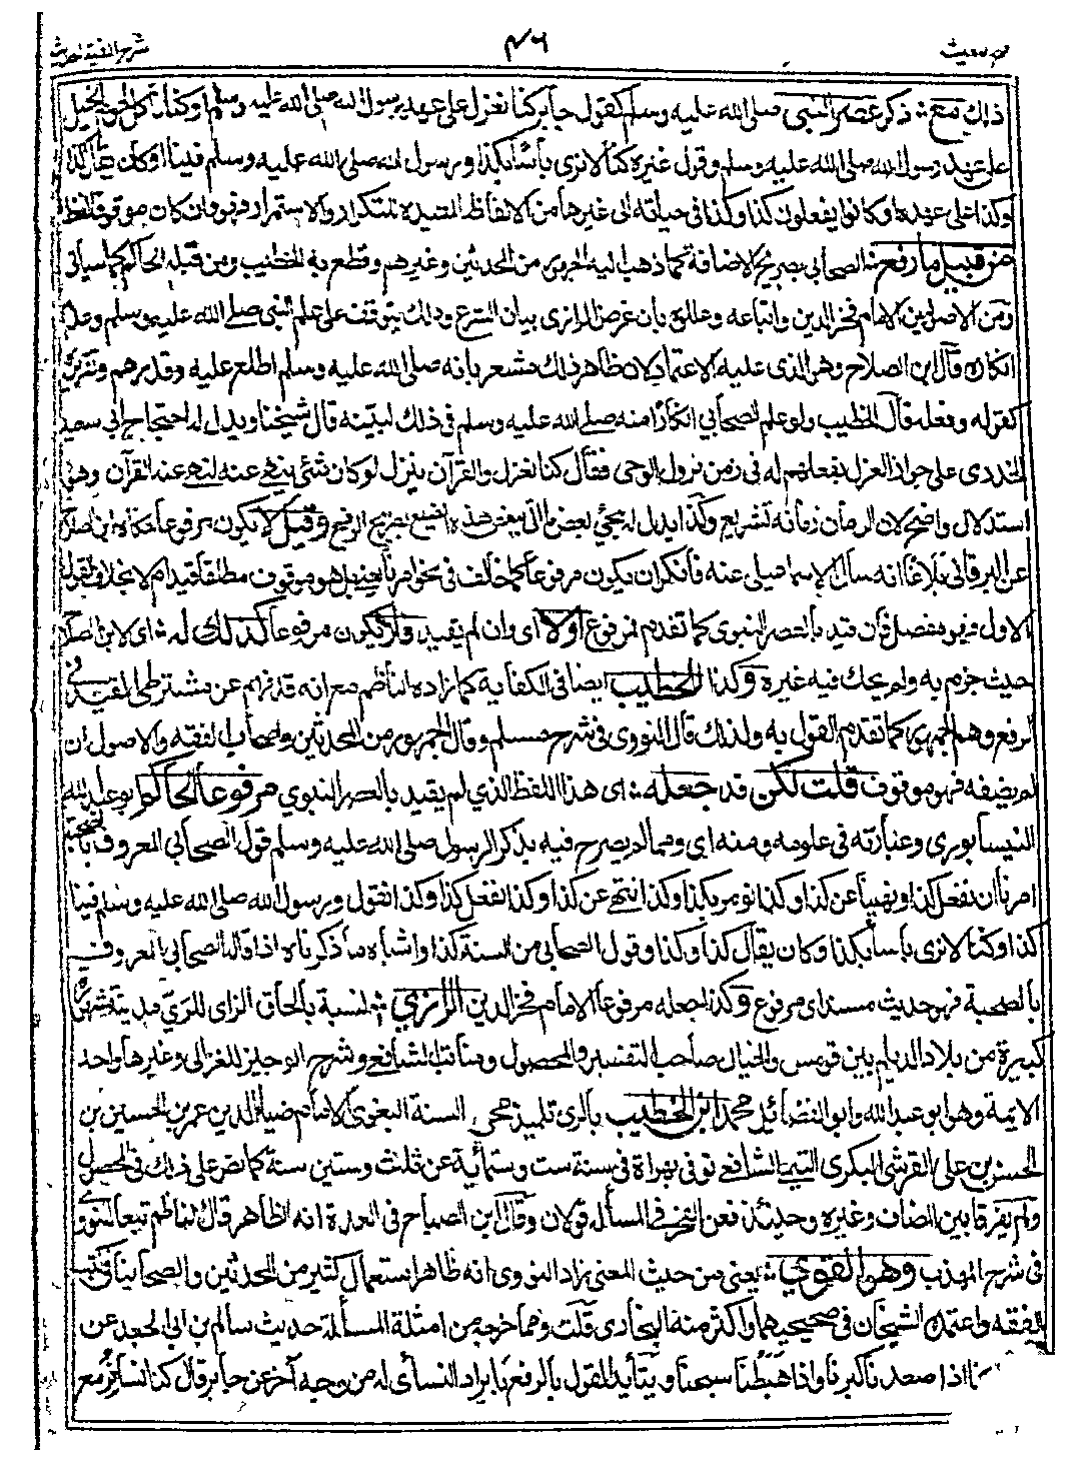 فتح المغيث
٤٦
شرح الفية الحديث
ذلك مع ذكر عصر النبي صلى الله عليه وسلم كقول جابر كنا نعزل على عهد رسول الله صلى الله عليه وسلم او كنا نأكل لحوم الخيل
على عهد رسول الله صلى الله عليه وسلم وقول غيره كنا لا نرى بأسا بكذا ورسول الله صلى الله عليه وسلم فينا او كان يقال كذا
وكذا على عهده او كانوا يفعلون كذا وكذا في حياته الى غيرها من الالفاظ المفيدة للتكرار والاستمرار فهو وان كان موقوفا لفظا
من قبيل ما رفع الصحابي بصريح الاضافة كما ذهب اليه الجمهور من المحدثين وغيرهم وقطع به الخطيب ومن قبله الحاكم كما سيأتي
ومن الاصوليين الامام فخر الدين واتباعه وعللوه بان غرض الراوي بيان الشرع وذلك يتوقف على علم النبي صلى الله عليه وسلم وعدم
انكاره قال ابن الصلاح وهو الذي عليه الاعتماد لان ظاهر ذلك مشعر بانه صلى الله عليه وسلم اطلع عليه وقررهم وتقريره
كقوله وفعله قال الخطيب ولو علم الصحابي انكارا منه صلى الله عليه وسلم في ذلك لبينه قال شيخنا ويدل له احتجاج ابي سعيد
الخدري على جواز العزل بفعلهم له في زمن نزول الوحي فقال كنا نعزل والقرآن ينزل لو كان شئ ينهى عنه لنهى عنه القرآن وهو
استدلال واضح لان الزمان زمان تشريع وكذا يدل له مجيء بعض الفاظ هذه الصيغ بصريح الرفع وقيل لا يكون مرفوعا حكاه ابن الصلاح
عن البرقاني بلاغا انه سأل الاسماعيلي عنه فأنكر ان يكون مرفوعا كما خالف في نحو امر يعني بل هو موقوف مطلقا قيد ام لا بخلاف القول
الاول فهو مفصل فان قيد بالعصر النبوي كما تقدم فمرفوع اولا اى وان لم يقيد فلا يكون مرفوعا كذلك له اى لابن الصلاح
حيث جزم به ولم يحك فيه غيره وكذا للخطيب ايضا في الكفاية كما زاده الناظم مع انه قد فهم عن مشترطي القيد في
الرفع وهم الجمهور كما تقدم القول به ولذلك قال النووي في شرح مسلم وقال الجمهور من المحدثين واصحاب الفقه والاصول ان
لم يضفه فهو موقوف قلت لكن قد جعله اى هذا اللفظ الذي لم يقيد بالعصر النبوي مرفوعا الحاكم ابو عبد الله
النيسابوري وعبارته في علومه ومنه اي ومما لم يصرح فيه بذكر الرسول صلى الله عليه وسلم قول الصحابي المعروف بالصحبة
امرنا ان نفعل كذا ونهينا عن كذا وكذا نومر بكذا وكذا ننتهي عن كذا وكذا نفعل كذا وكنا نقول ورسول الله صلى الله عليه وسلم فينا
كذا وكنا لا نرى بأسا بكذا وكان يقال كذا وكذا وقول الصحابي من السنة كذا واشباه ما ذكرناه اذا قاله الصحابي المعروف
بالصحبة فهو حديث مسند اى مرفوع وكذا جعله مرفوعا الامام فخر الدين الرازي نسبة بالحاق الزاى للري مدينة مشهورة
كبيرة من بلاد الديلم بين قومس والجبال صاحب التفسير والمحصول ومناقب الشافعي وشرح الوجيز للغزالي وغيرها واحد
الايمة وهو ابو عبد الله وابو الفضائل محمد ابن الخطيب بالري تلميذ محي السنة البغوي الامام ضياء الدين عمر بن الحسين بن
الحسن بن علي القرشي البكري التيمي الشافعي توفي بهراة في سنة ست وستمائة عن ثلث وستين سنة كما نص على ذلك في المحصول
ولم يفرقا بين المضاف وغيره وحينئذ فعن الفخر في المسألة قولان وقال ابن الصباغ في العدة انه الظاهر قال الناظم تبعا للنووي
في شرح المهذب وهو القوي يعني من حيث المعنى زاد النووي انه ظاهر استعمال كثير من المحدثين والصحابنا في كتب
الفقه واعتمده الشيخان في صحيحيهما واكثر منه البخاري قلت ومما خرجه من امثلة المسألة حديث سالم بن ابي الجعد عن
كنا اذا صعدنا كبرنا واذا هبطنا سبحنا ويتأيد القول بالرفع بايراد النسائي له من وجه آخر عن جابر قال كنا نسافر مع